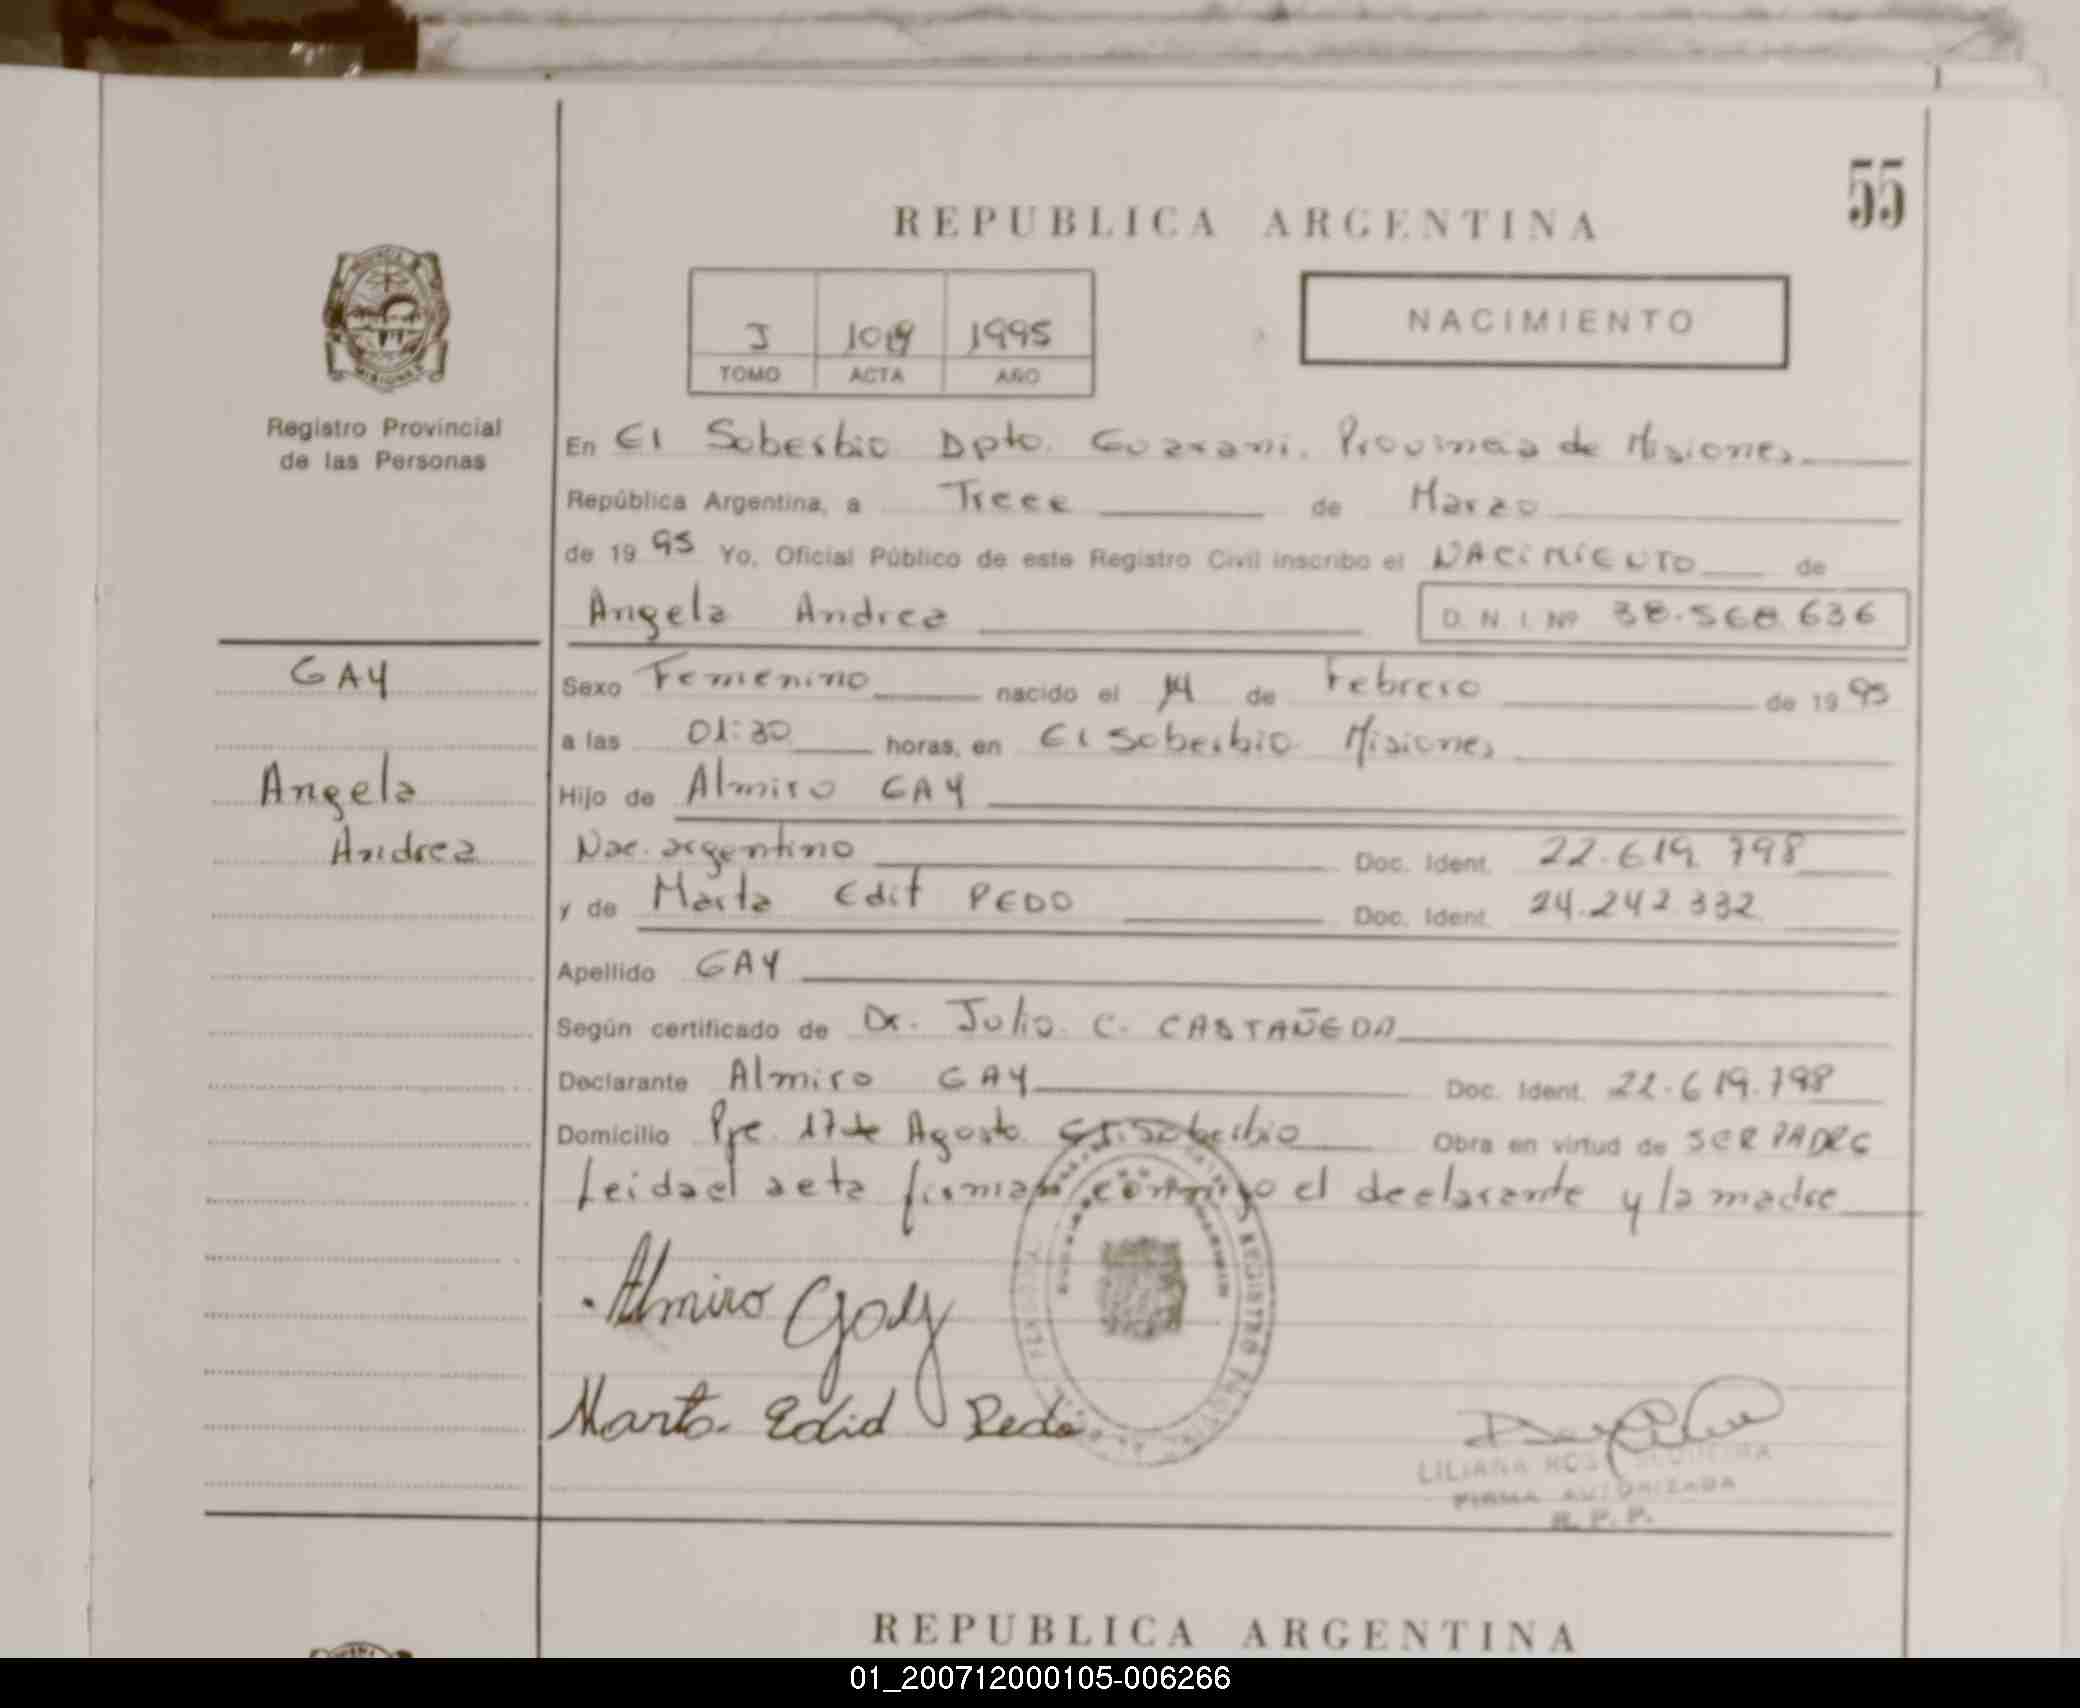 55
REPUBLICA ARGENTINA
NACIMIENTO
J 1995
TOMO ACTA AÑO
MISIONES
Registro Provincial
de las Personas
En El Soberbio Dpto. Guarani. Provincia de Misiones
República Argentina, a Trece de Marzo
de 19 95 Yo, Oficial Público de este Registro Civil inscribo el NACIMIENTO de
Angela Andrea D. N. I. Nº 38.568.636
GAY
Angela
Andrea
Sexo Femenino nacido el de Febrero de 19 95
a las 01:30 horas, en El Soberbio Misiones
Hijo de Almiro GAY
Nac. argentino Doc. Ident. 22.619.798
y de Marta Edit PEDO Doc. Ident. 24.242.332
Apellido GAY
Según certificado de Dr. Julio C. CASTAÑEDA
Declarante Almiro GAY Doc. Ident. 22.619.798
Domicilio Pje. 17 de Agosto El Soberbio Obra en virtud de SER PADRE
Leida el acta firman conmigo el declarante y la madre
Almiro Gay
Marta Edid Pedo
REGISTRO
LILIANA
FIRMA AUTORIZADA
R. P. P.
REPUBLICA ARGENTINA
01_200712000105-006266